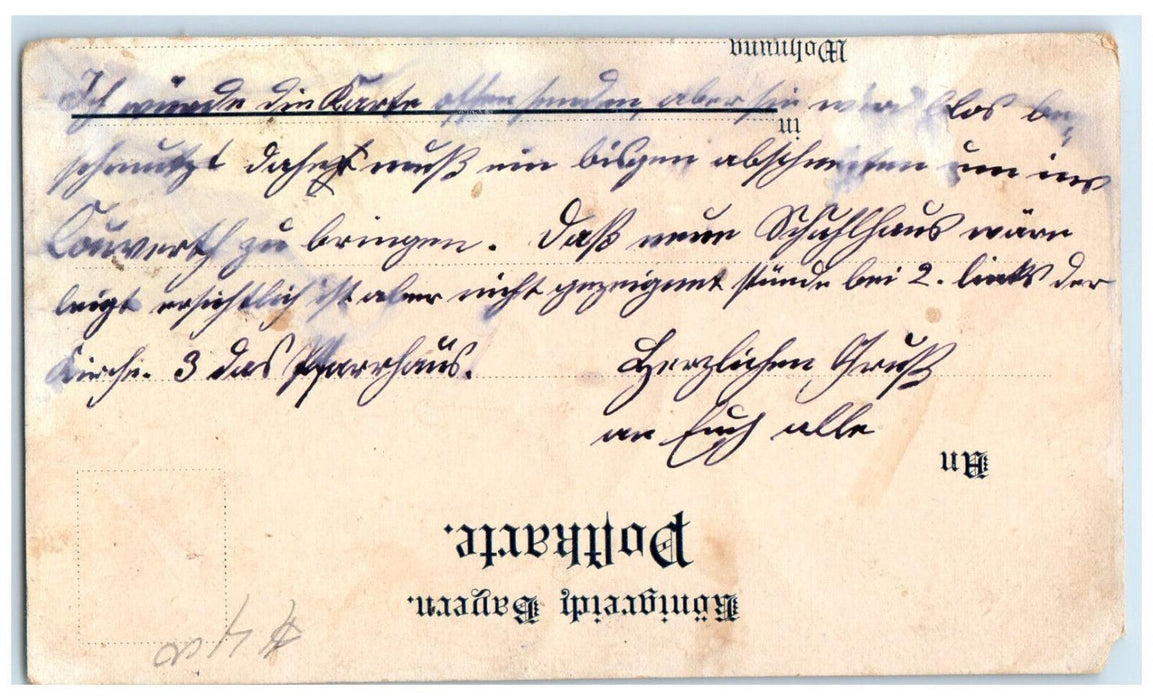 Wohnung
Ich würde die Karte offen senden, aber sie wird blos be-
in
schmutzt daher muß ein bisgen abschneiden um ins
Couverth zu bringen. Daß neue Schuhlhaus wäre
leigt ersichtlich ist aber nicht gezeignet stünde bei 2. links der
Kirche. 3 das Pfarrhaus.
Herzlichen Gruß
an Euch alle
An
Postkarte.
Königreich Bayern.